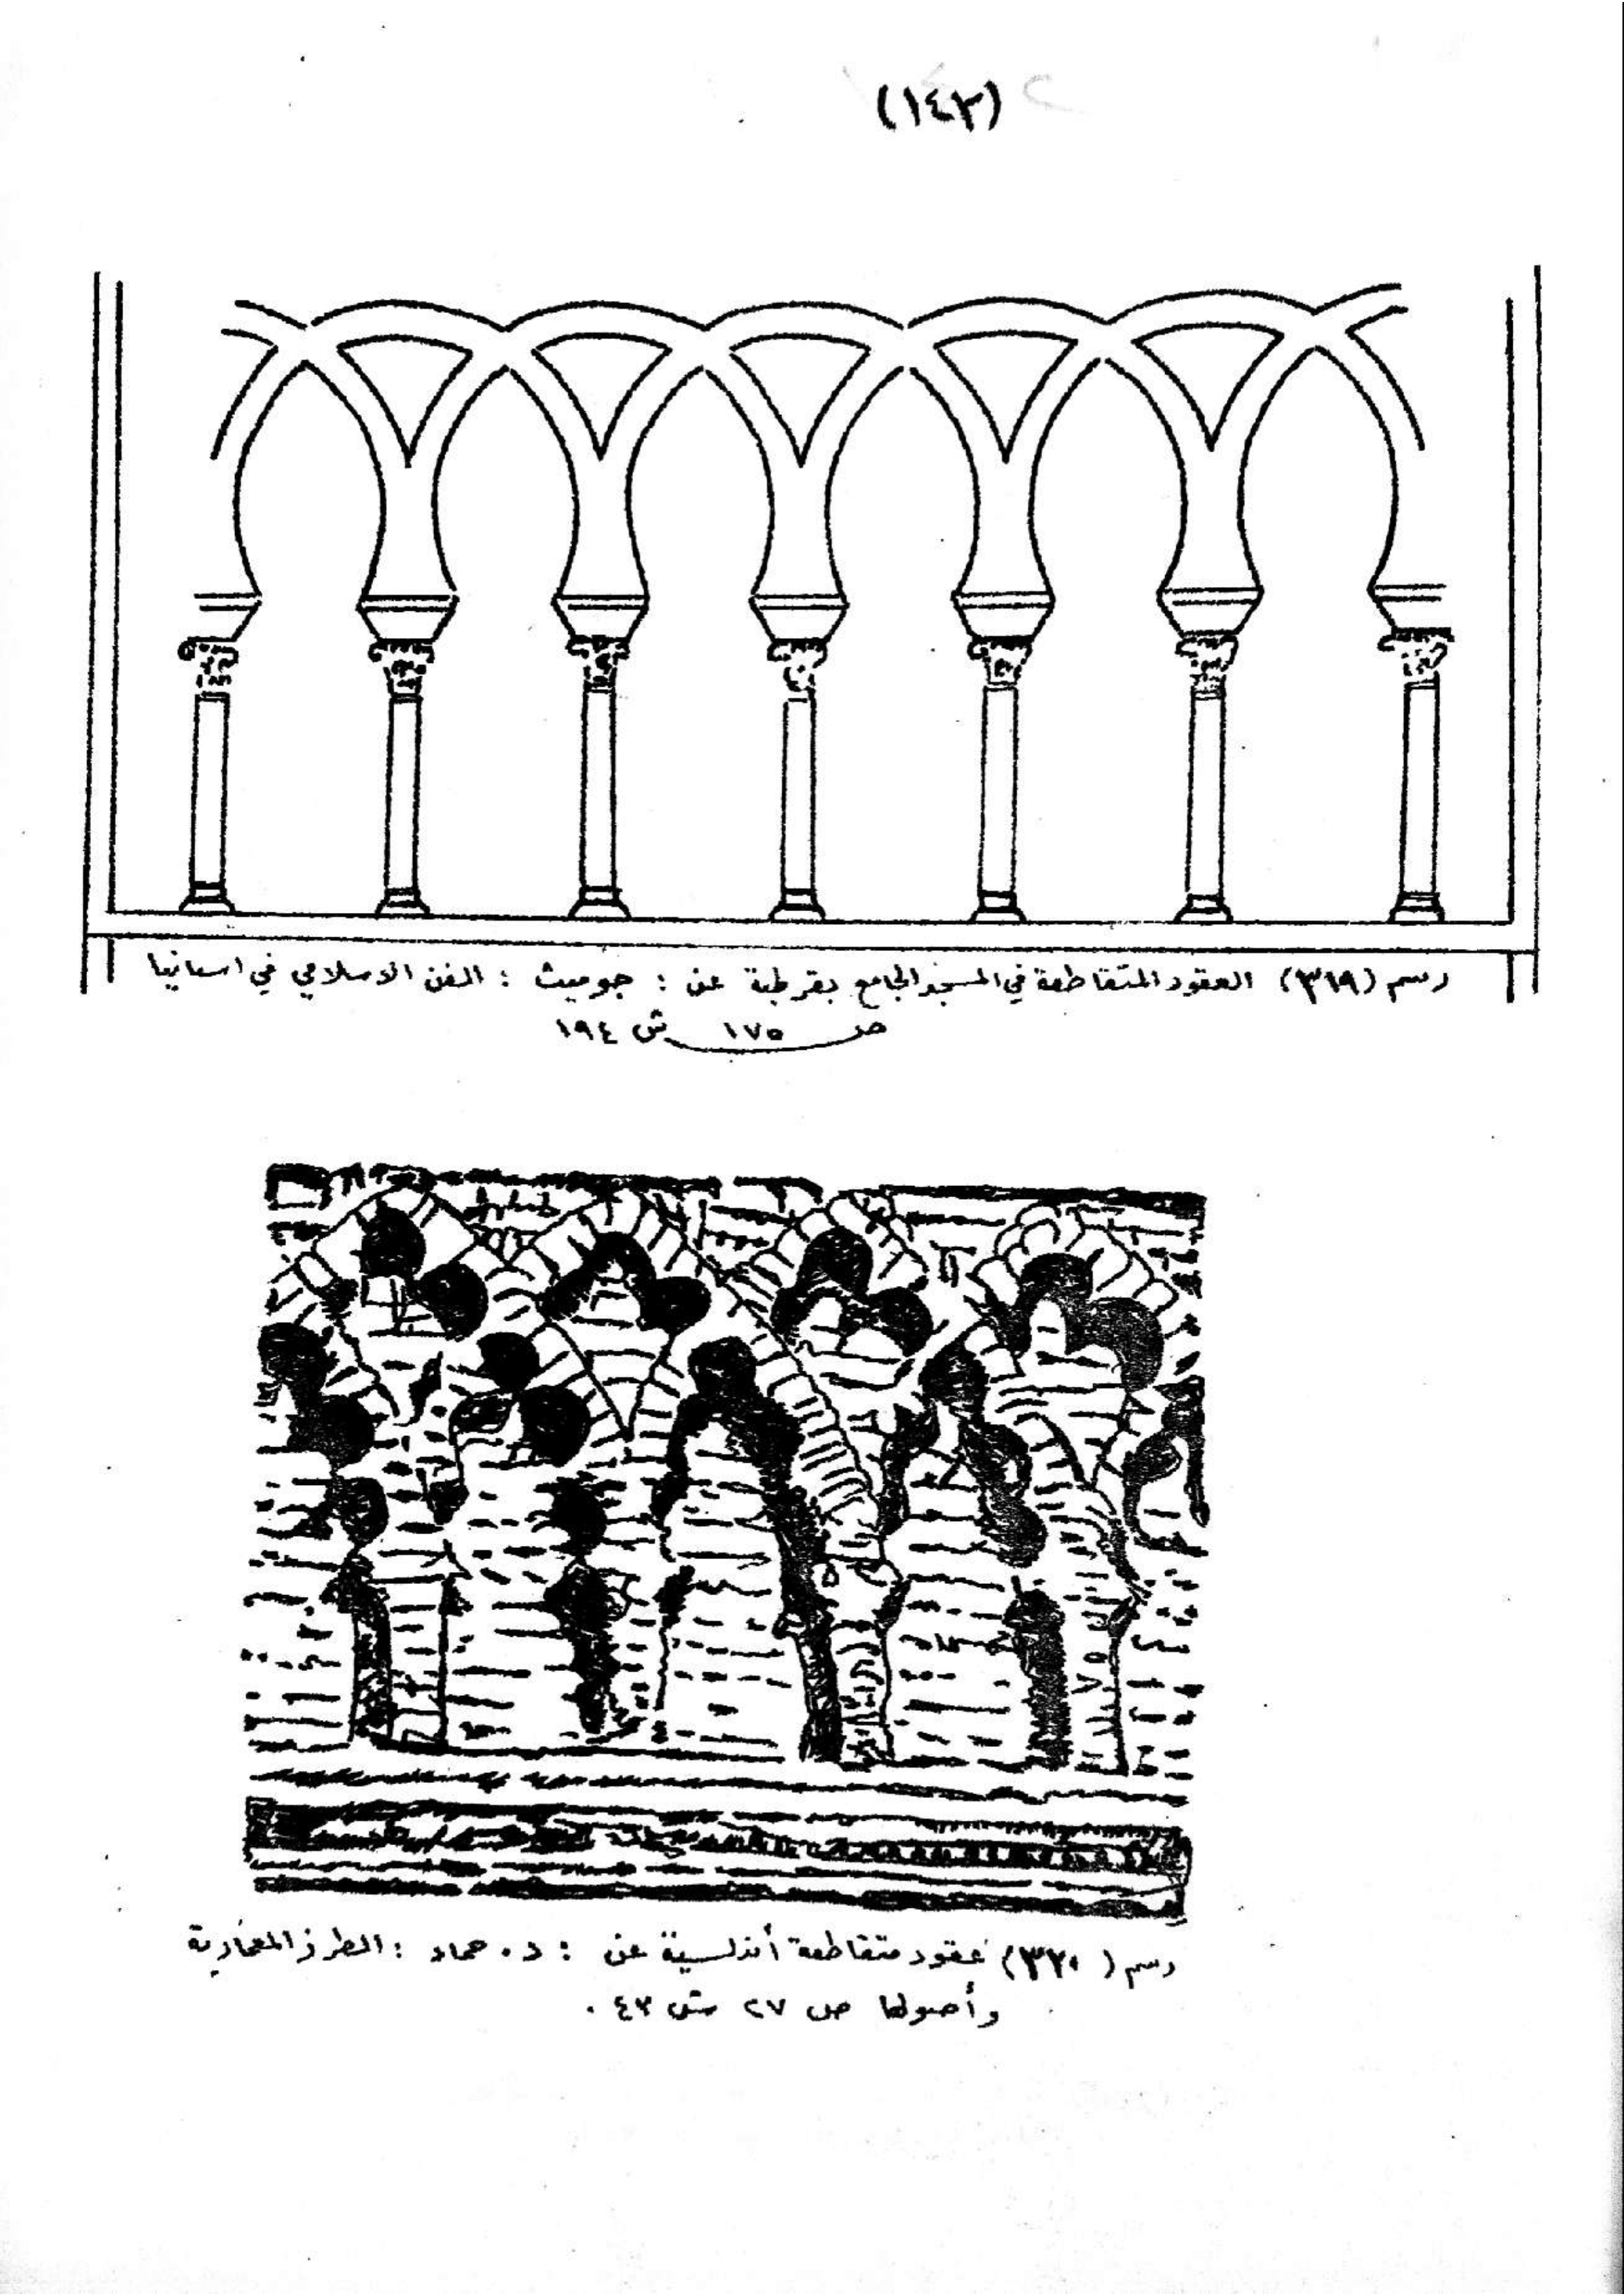 (١٤٣)
رسم (٣١٩) العقود المتقاطعة في المسجد الجامع بقرطبة عن : جوميث : الفن الاسلامي في اسبانيا
ص ١٧٥ ش ١٩٤
رسم (٣٢٠) عقود متقاطعة أندلسية عن : د . حماد : الطرز المعمارية
وأصولها ص ٢٧ ش ٤٣ .